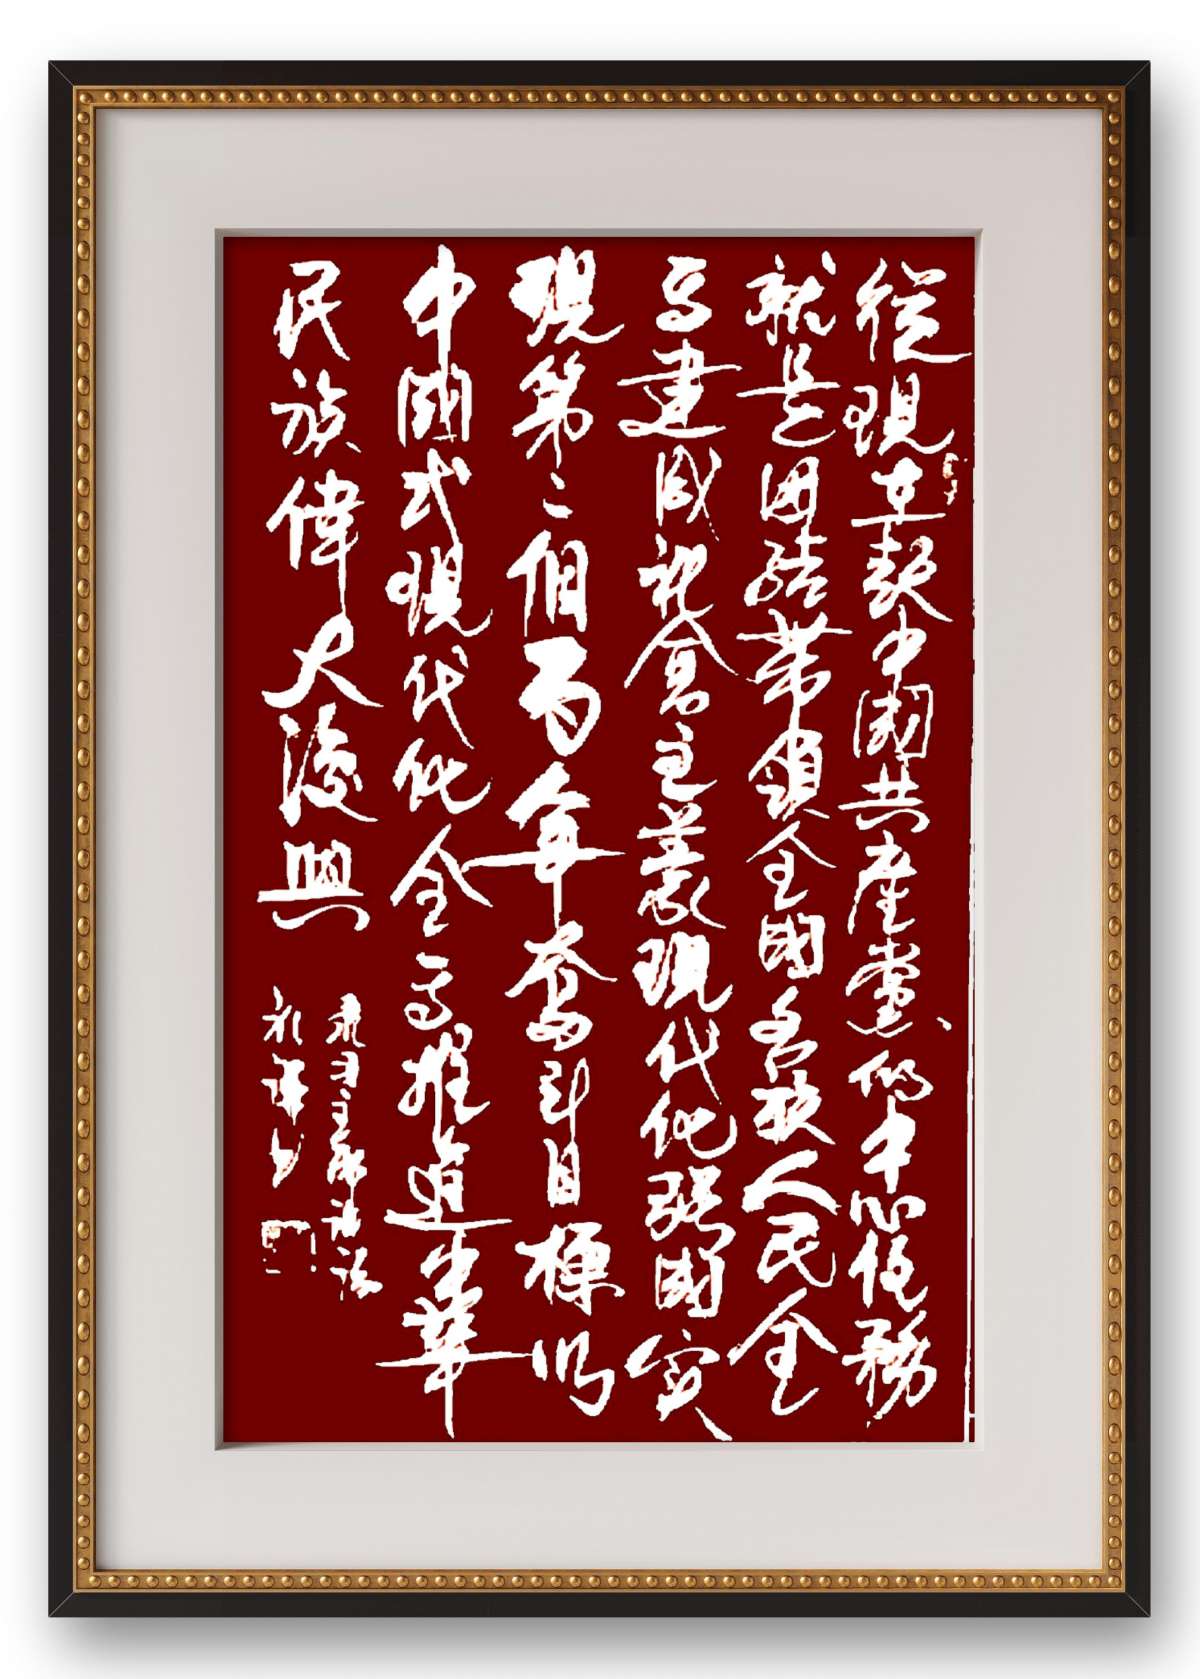 從現在起中國共產黨的中心任務
就是团结帶領全國各族人民全
面建成社會主義現代化强國实
現第二個百年奮斗目標以
中國式現代化全面推進中華
民族偉大復興